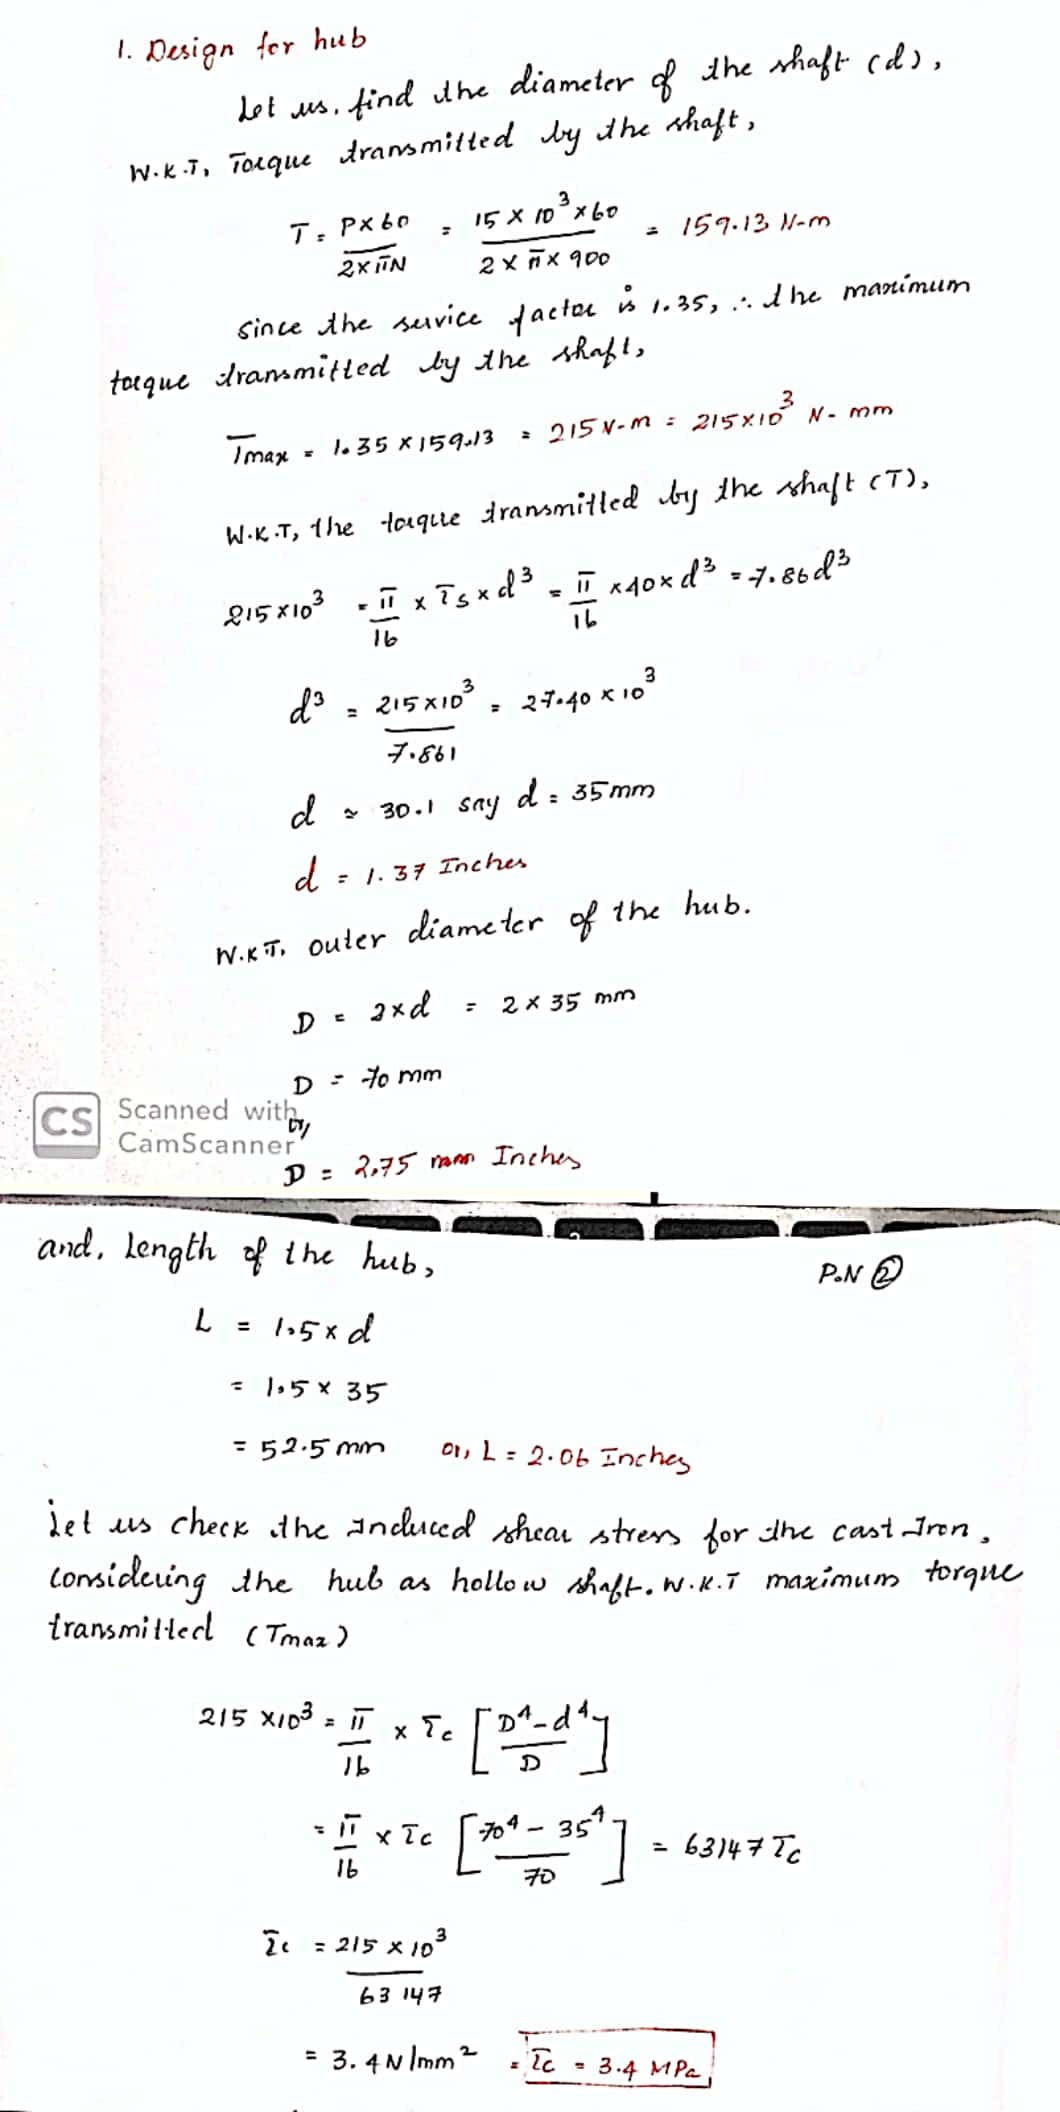 1. Design for hub
Let us, find the diameter of the shaft (d),
W.K.T, Torque transmitted by the shaft,
T = P×60 / 2×πN = 15 × 10³ ×60 / 2 × π × 900 = 159.13 N-m
Since the service factor is 1.35, ∴ the maximum
torque transmitted by the shaft,
Tmax = 1.35 × 159.13 = 215 N-m = 215×10³ N-mm
W.K.T, the torque transmitted by the shaft (T),
215×10³ = π/16 × τs × d³ = π/16 ×40× d³ = 7.86d³
d³ = 215×10³ / 7.861 = 27.40 × 10³
d ≈ 30.1 say d = 35mm
d = 1.37 Inches
W.K.T, outer diameter of the hub.
D = 2×d = 2 × 35 mm
D = 70 mm
CS Scanned with
CamScanner
or,
D = 2.75 mm Inches
and, Length of the hub,
P.N ②
L = 1.5 × d
= 1.5 × 35
= 52.5 mm or, L = 2.06 Inches
Let us check the induced shear stress for the cast Iron,
Considering the hub as hollow shaft. W.K.T maximum torque
transmitted (Tmax)
215 ×10³ = π/16 × τc [D⁴-d⁴ / D]
= π/16 × τc [70⁴ - 35⁴ / 70] = 63147 τc
τc = 215 × 10³ / 63 147
= 3.4 N/mm² = τc = 3.4 MPa